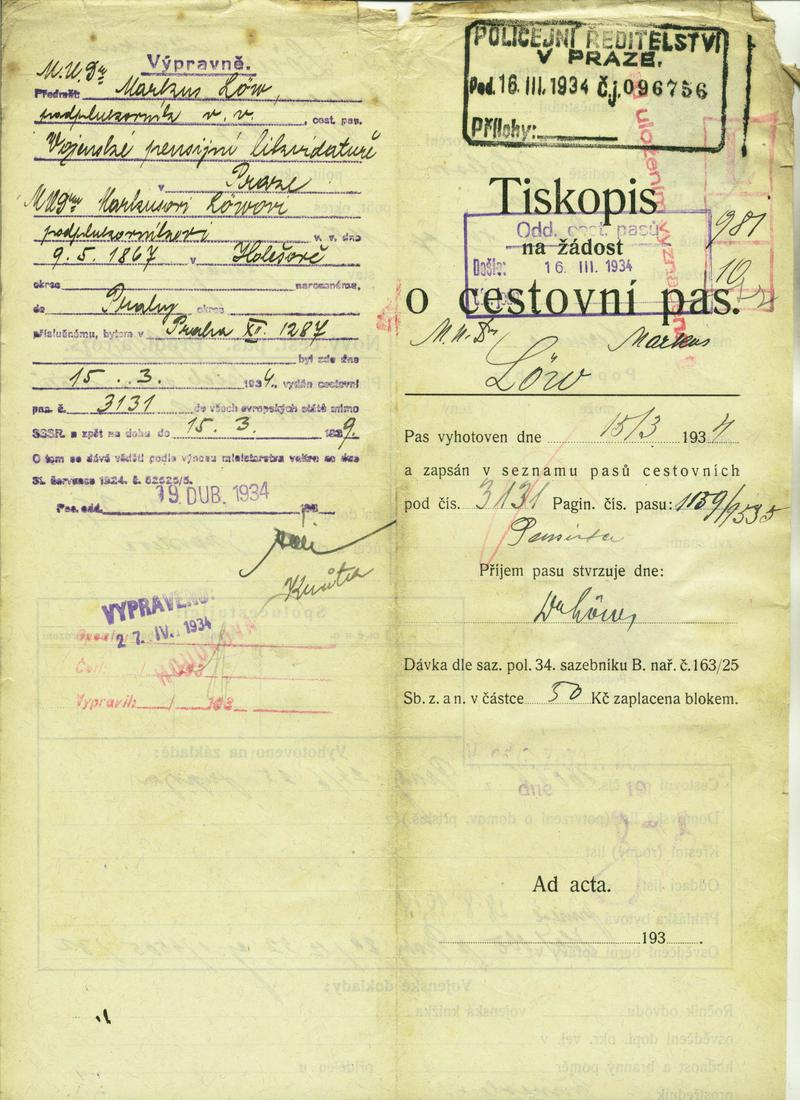 Výpravně.
M.U.Dr
Předmět: Markus Löw,
podplukovník v. v. , cest. pas.
Vojenské pensijní likvidatuře
v Praze
MUDru Markusovi Löwovi
podplukovníkovi v. v. dne
9. 5. 1867 v Holešově
okres narozenému,
do Prahy okres
příslušnému, bytem v Praha XI. 1287
byl zde dne
15. 3. 1934. vydán cestovní
pas č. 3131 do všech evropských států mimo
SSSR. a zpět na dobu do 15. 3. 1939.
O tom se dává věděti podle výnosu ministerstva vnitra ze dne
31. července 1924. č. 52525/5.
Pas. odd. 19 DUB. 1934
VYPRAVENO:
27. IV. 1934
Vypravil: / 193
POLICEJNÍ ŘEDITELSTVÍ
V PRAZE.
Pod. 16. III. 1934 Č.j. 096756
Přílohy:
Tiskopis
Odd. cest. pasů
na žádost
Došlo: 16. III. 1934
981
10
o cestovní pas.
M.U.Dr Markus
Löw
Pas vyhotoven dne 15/3 1934
a zapsán v seznamu pasů cestovních
pod čís. 3131 Pagin. čís. pasu: 1159/1535
Příjem pasu stvrzuje dne:
Dr Löw
Dávka dle saz. pol. 34. sazebníku B. nař. č. 163/25
Sb. z. a n. v částce 50 Kč zaplacena blokem.
Ad acta.
193 .